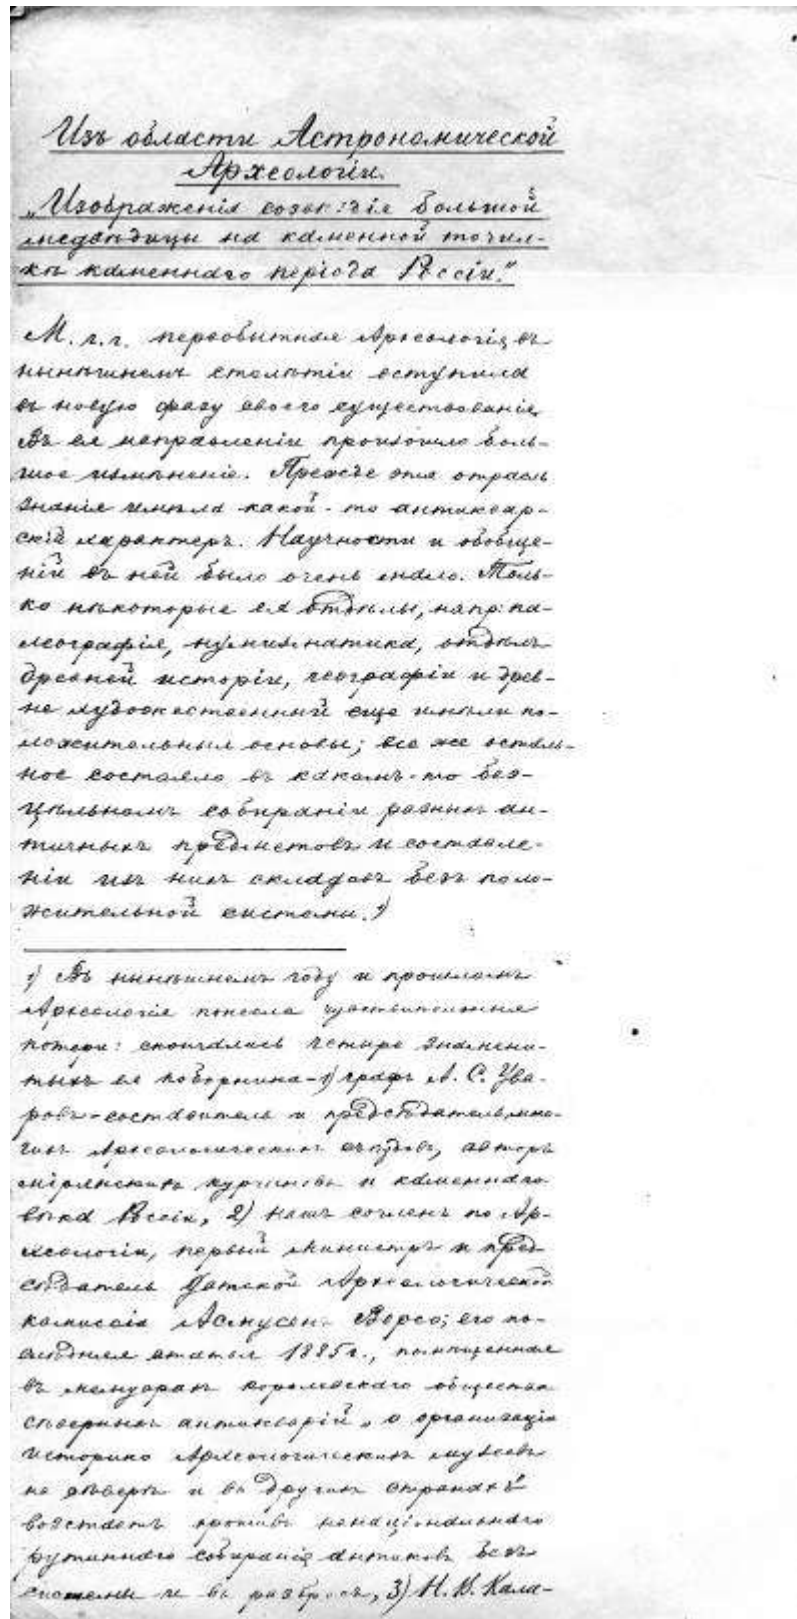 Изъ области Астрономической
Археологіи.
„Изображенія созвѣздія большой
медвѣдицы на каменной точил-
кѣ каменнаго періода Россіи."
М. г. г. первобытная Археологія въ
нынѣшнемъ столѣтіи вступила
въ новую фазу своего существованія
Въ ея направленіи произошло боль-
шое измѣненіе. Прежде эта отрасль
знанія имѣла какой-то антиквар-
скій характеръ. Научности и обобще-
ній въ ней было очень мало. Толь-
ко нѣкоторые ея отдѣлы, напр: па-
леографія, нумизматика, отдѣлъ
древней исторіи, географіи и древ-
не художественный еще имѣли по-
ложительныя основы; все же осталь-
ное состояло въ какомъ-то без-
цѣльномъ собираніи разныхъ ан-
тичныхъ предметовъ и составле-
ніи изъ нихъ складовъ безъ поло-
жительной системы. 1)
1) Въ нынѣшнемъ году и прошломъ
Археологія понесла чувствительныя
потери: скончались четыре знамени-
тыхъ ея поборника - 1) графъ А. С. Ува-
ровъ - составитель и предсѣдатель мно-
гихъ Археологическихъ съѣздовъ, авторъ
мѣрянскихъ кургановъ и каменнаго
вѣка Россіи, 2) нашъ сочленъ по Ар-
хеологіи, первый министръ и пред-
сѣдатель Датской Археологической
комиссіи Асмусенъ Ворсо; его по-
слѣдняя статья 1885 г., помѣщенная
въ мемуарахъ королевскаго общества
сѣверныхъ антикварій „о организаціи
историко Археологическихъ музеевъ
на сѣверѣ и въ другихъ странахъ"
возстаетъ противъ ненаціональнаго
рутиннаго собиранія антиковъ безъ
системы и въ разбросъ, 3) Н. В. Кала-